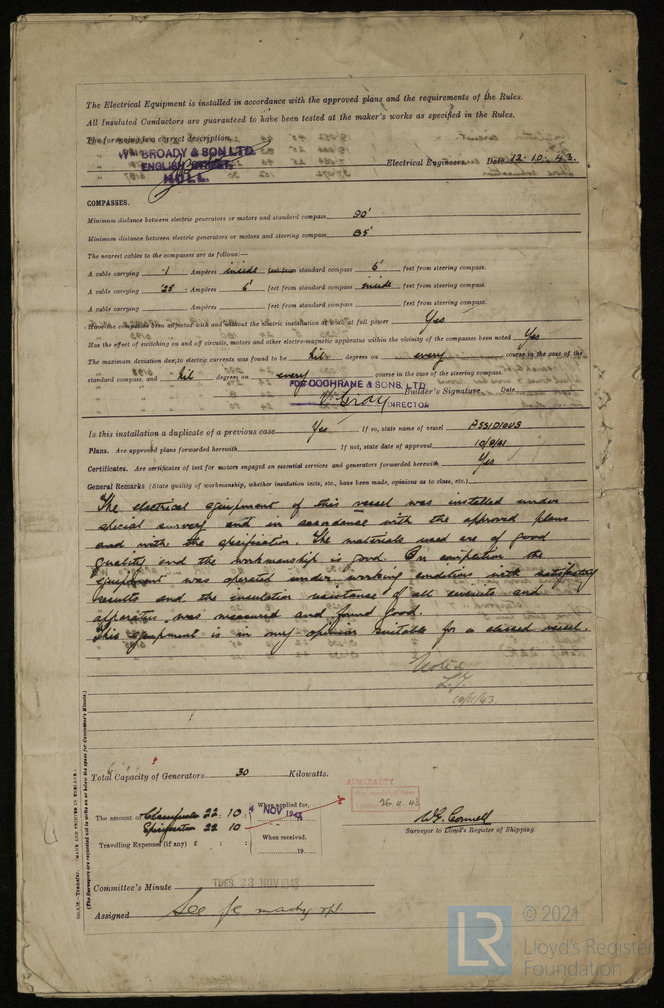 The Electrical Equipment is installed in accordance with the approved plans and the requirements of the Rules.
All Insulated Conductors are guaranteed to have been tested at the maker's works as specified in the Rules.
The foregoing is a correct description.
WM BROADY & SON LTD.
ENGLISH STREET,
HULL.
Electrical Engineers. Date 12.10.43.
COMPASSES.
Minimum distance between electric generators or motors and standard compass 90'
Minimum distance between electric generators or motors and steering compass 85'
The nearest cables to the compasses are as follows:—
A cable carrying .1 Ampères inside feet from standard compass 6' feet from steering compass.
A cable carrying .25 Ampères 6' feet from standard compass inside feet from steering compass.
A cable carrying Ampères feet from standard compass feet from steering compass.
Have the compasses been adjusted with and without the electric installation at work at full power Yes
Has the effect of switching on and off circuits, motors and other electro-magnetic apparatus within the vicinity of the compasses been noted Yes
The maximum deviation due to electric currents was found to be Nil degrees on every course in the case of the
standard compass, and Nil degrees on every course in the case of the steering compass.
FOR COCHRANE & SONS, LTD.
V. Gray DIRECTOR Builder's Signature. Date
Is this installation a duplicate of a previous case Yes If so, state name of vessel ASSIDIOUS
Plans. Are approved plans forwarded herewith If not, state date of approval 10/9/41
Certificates. Are certificates of test for motors engaged on essential services and generators forwarded herewith Yes
General Remarks (State quality of workmanship, whether insulation tests, etc., have been made, opinions as to class, etc.)
The electrical equipment of this vessel was installed under
special survey and in accordance with the approved plans
and with the specification. The materials used are of good
quality and the workmanship is good. On completion the
equipment was operated under working conditions with satisfactory
results and the insulation resistance of all circuits and
apparatus was measured and found good.
This equipment is in my opinion suitable for a classed vessel.
Noted
Total Capacity of Generators 30 Kilowatts.
ADMIRALTY
26.11.43
The amount of Classification 22 : 10 : When applied for,
4 NOV 1943
Specification 22 10
When received.
Travelling Expenses (if any) £ : : 19
W.G. Connell
Surveyor to Lloyd's Register of Shipping.
Committee's Minute TUES 23 NOV 1943
Assigned See fe machy rpt.
(The Surveyors are requested not to write on or below the space for Committee's Minute.)
© 2021
LR
Lloyd's Register
Foundation